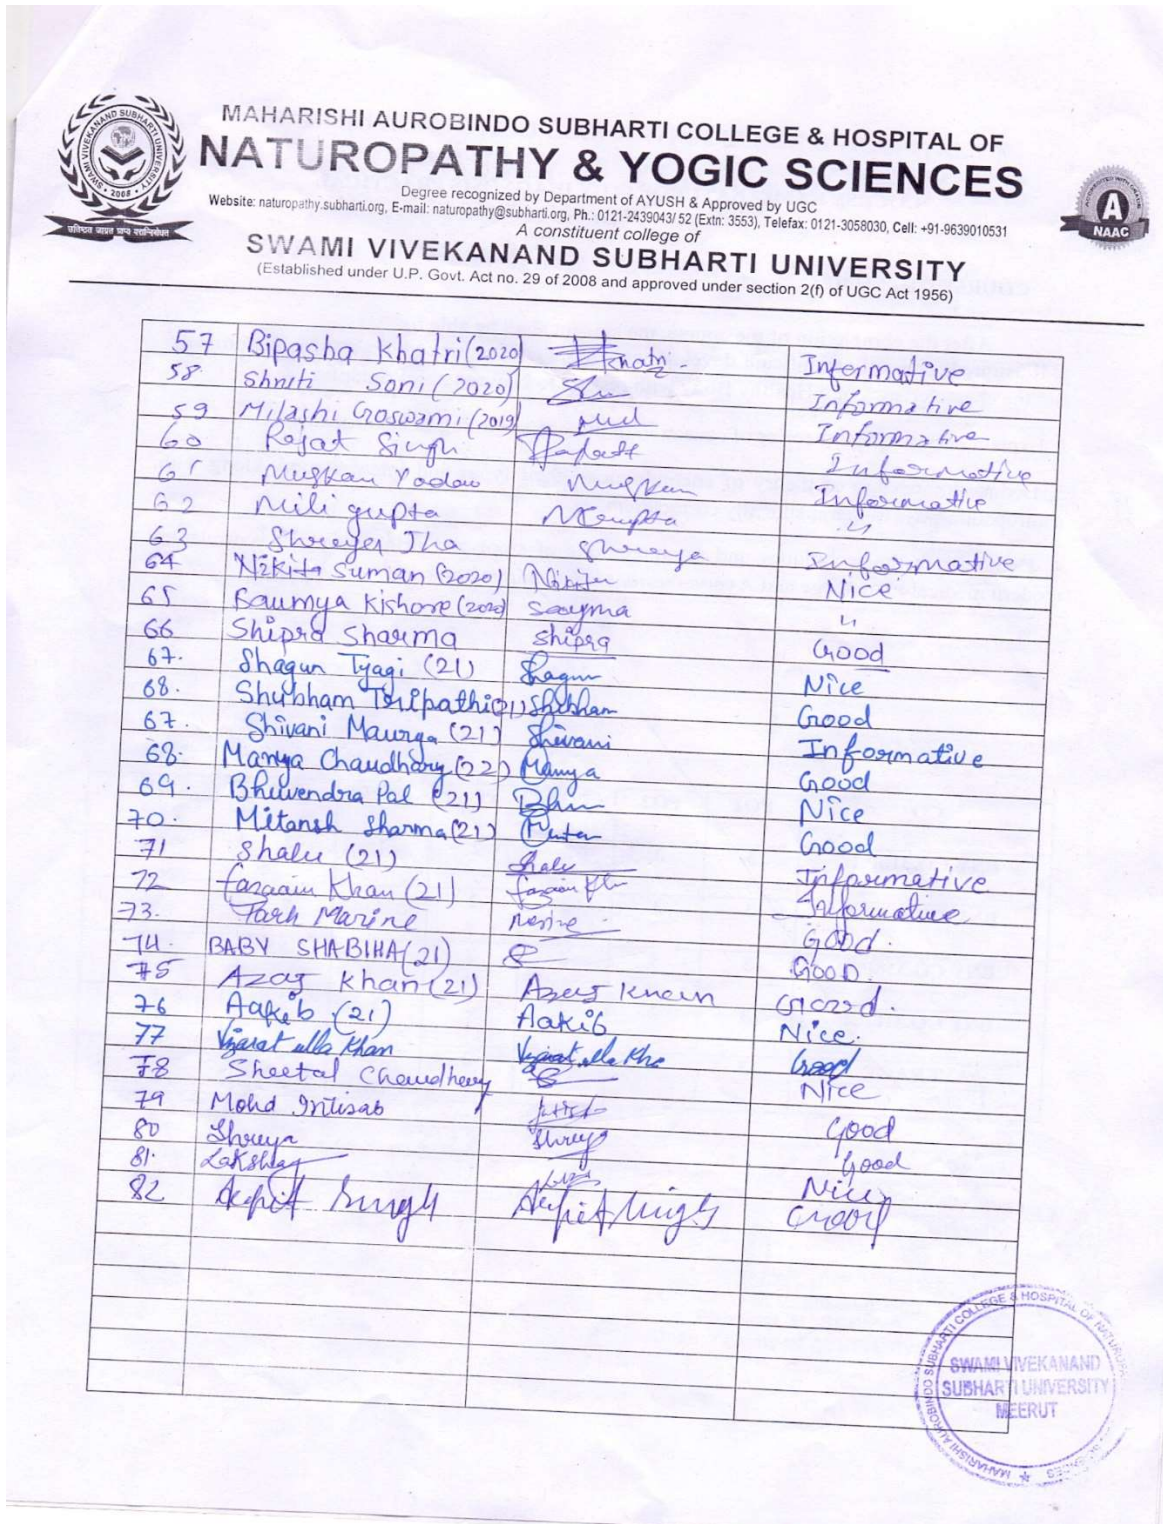 MAHARISHI AUROBINDO SUBHARTI COLLEGE & HOSPITAL OF
NATUROPATHY & YOGIC SCIENCES
Degree recognized by Department of AYUSH & Approved by UGC
Website: naturopathy.subharti.org, E-mail: naturopathy@subharti.org, Ph.: 0121-2439043/ 52 (Extn: 3553), Telefax: 0121-3058030, Cell: +91-9639010531
A constituent college of
SWAMI VIVEKANAND SUBHARTI UNIVERSITY
(Established under U.P. Govt. Act no. 29 of 2008 and approved under section 2(f) of UGC Act 1956)
SWAMI VIVEKANAND SUBHARTI UNIVERSITY
2008
A
NAAC
57 Bipasha Khatri (2020) Informative
58. Shruti Soni (2020) Informative
59 Milashi Goswami (2019) Informative
60 Rajat Singh Informative
61 Muskan Yadav Muskan Informative
62 Mili gupta MGupta "
63 Shreya Jha Shreya Informative
64 Nikita Suman (2020) Nikita Nice
65 Kishore (2020) "
66 Shipra Sharma Shipra Good
67. Shagun Tyagi (21) Shagun Nice
68. Shubham Tripathi (21) Shubham Good
67. Shivani Maurya (21) Shivani Informative
68. Manya Chaudhary (22) Manya Good
69. Bhuvendra Pal (21) Nice
70. Mitansh Sharma (21) Good
71 Shalu (21) Shalu Informative
72 Khan (21) Informative
73. Good.
74. BABY SHABIHA (21) Good.
75 Azaz Khan (21) Azaz Khan Good.
76 Aakib (21) Aakib Nice.
77 ulla Khan Good
78 Sheetal Chaudhary Nice
79 Mohd Intisab Good
80 Shreya Shreya Good
81. Lakshay Nice
82 Arpit Singh Arpit Singh Good
MAHARISHI AUROBINDO SUBHARTI COLLEGE & HOSPITAL OF
SWAMI VIVEKANAND
SUBHARTI UNIVERSITY
MEERUT